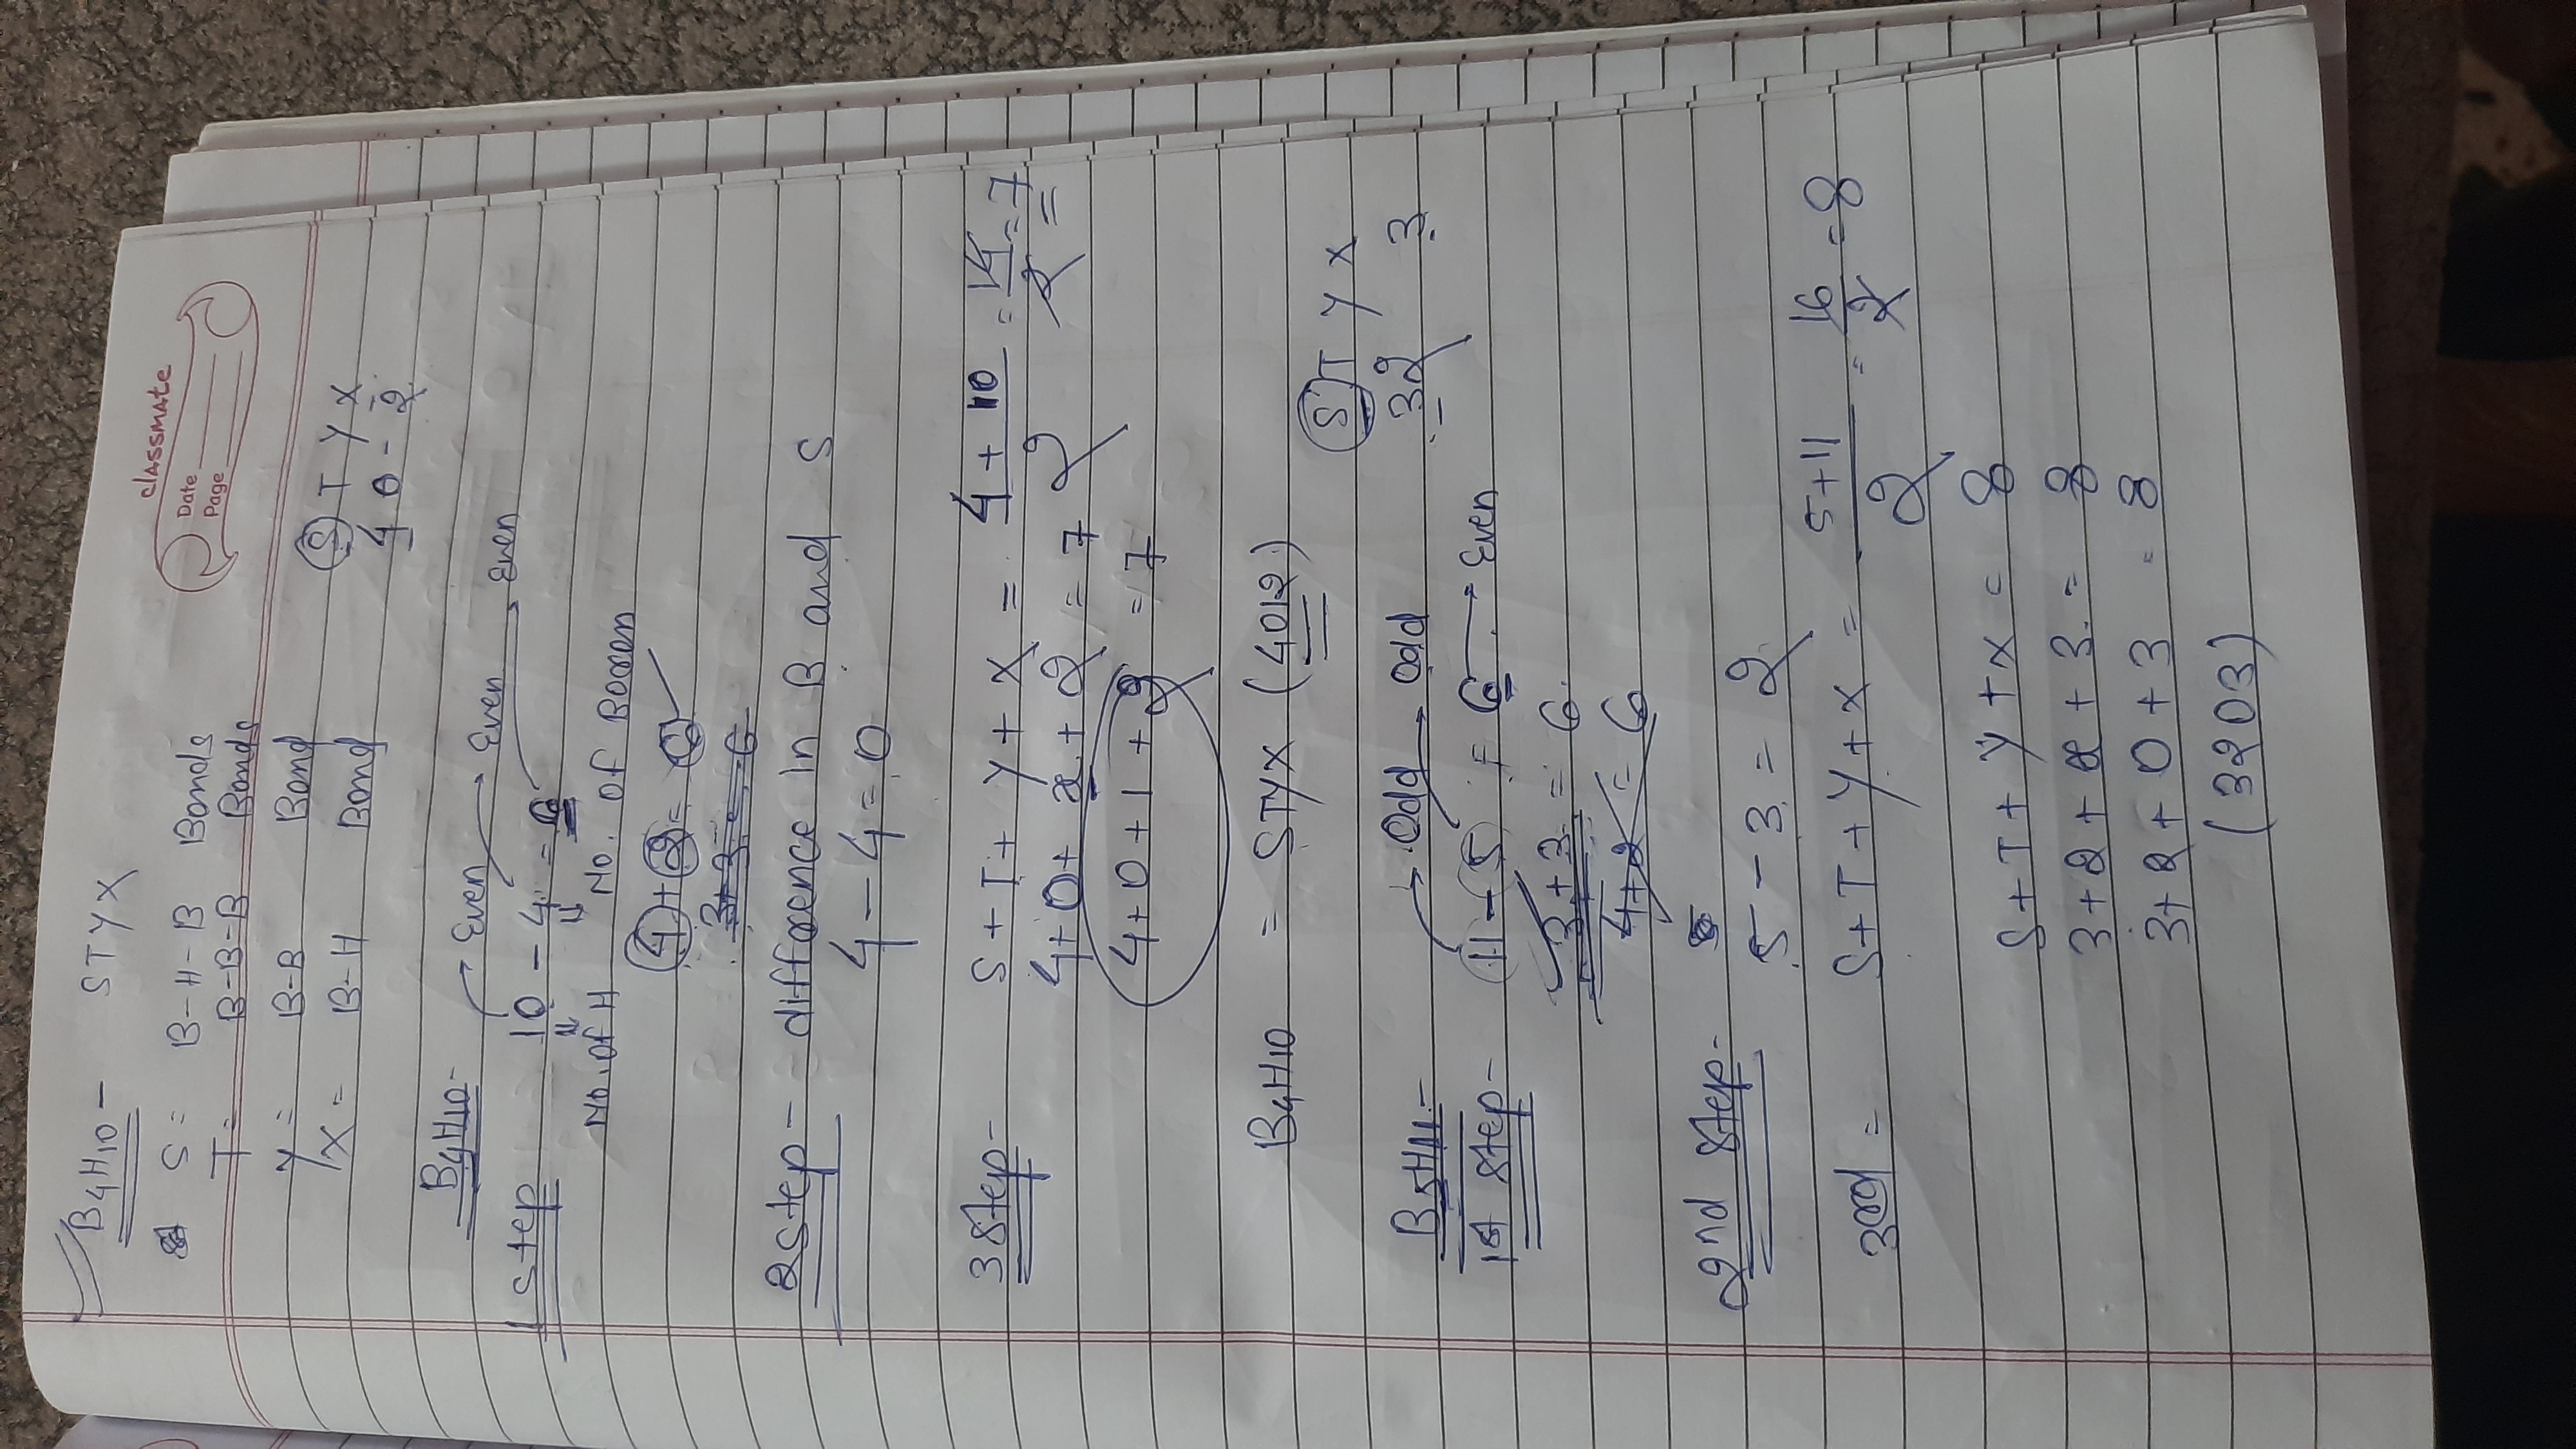 classmate
Date
Page
B4H10 - STYX
S = B-H-B Bonds
T = B-B-B Bonds
Y = B-B Bond
X = B-H Bond
S T Y X
4 0 - 2
B4H10- Even → Even → Even
1 Step 10 - 4 = 6
No. of H No. of Boron
4+2 = 6
3+3 = 6
2 Step - difference in B and S
4 - 4 = 0
3 Step - S + T + Y + X = 4 + 10 / 2 = 14 / 2 = 7
4 + 0 + x + 2 = 7
4 + 0 + 1 + 2 = 7
B4H10 = STYX (4012)
S T Y X
3 2 3
B5H11- Odd → Odd
1st Step - 11 - 5 = 6 → Even
3+3 = 6
4+2 = 6
2nd Step - 5 - 3 = 2
3rd = S + T + Y + X = 5+11 / 2 = 16 / 2 = 8
S + T + Y + X = 8
3 + 2 + x + 3 = 8
3 + 2 + 0 + 3 = 8
(3203)